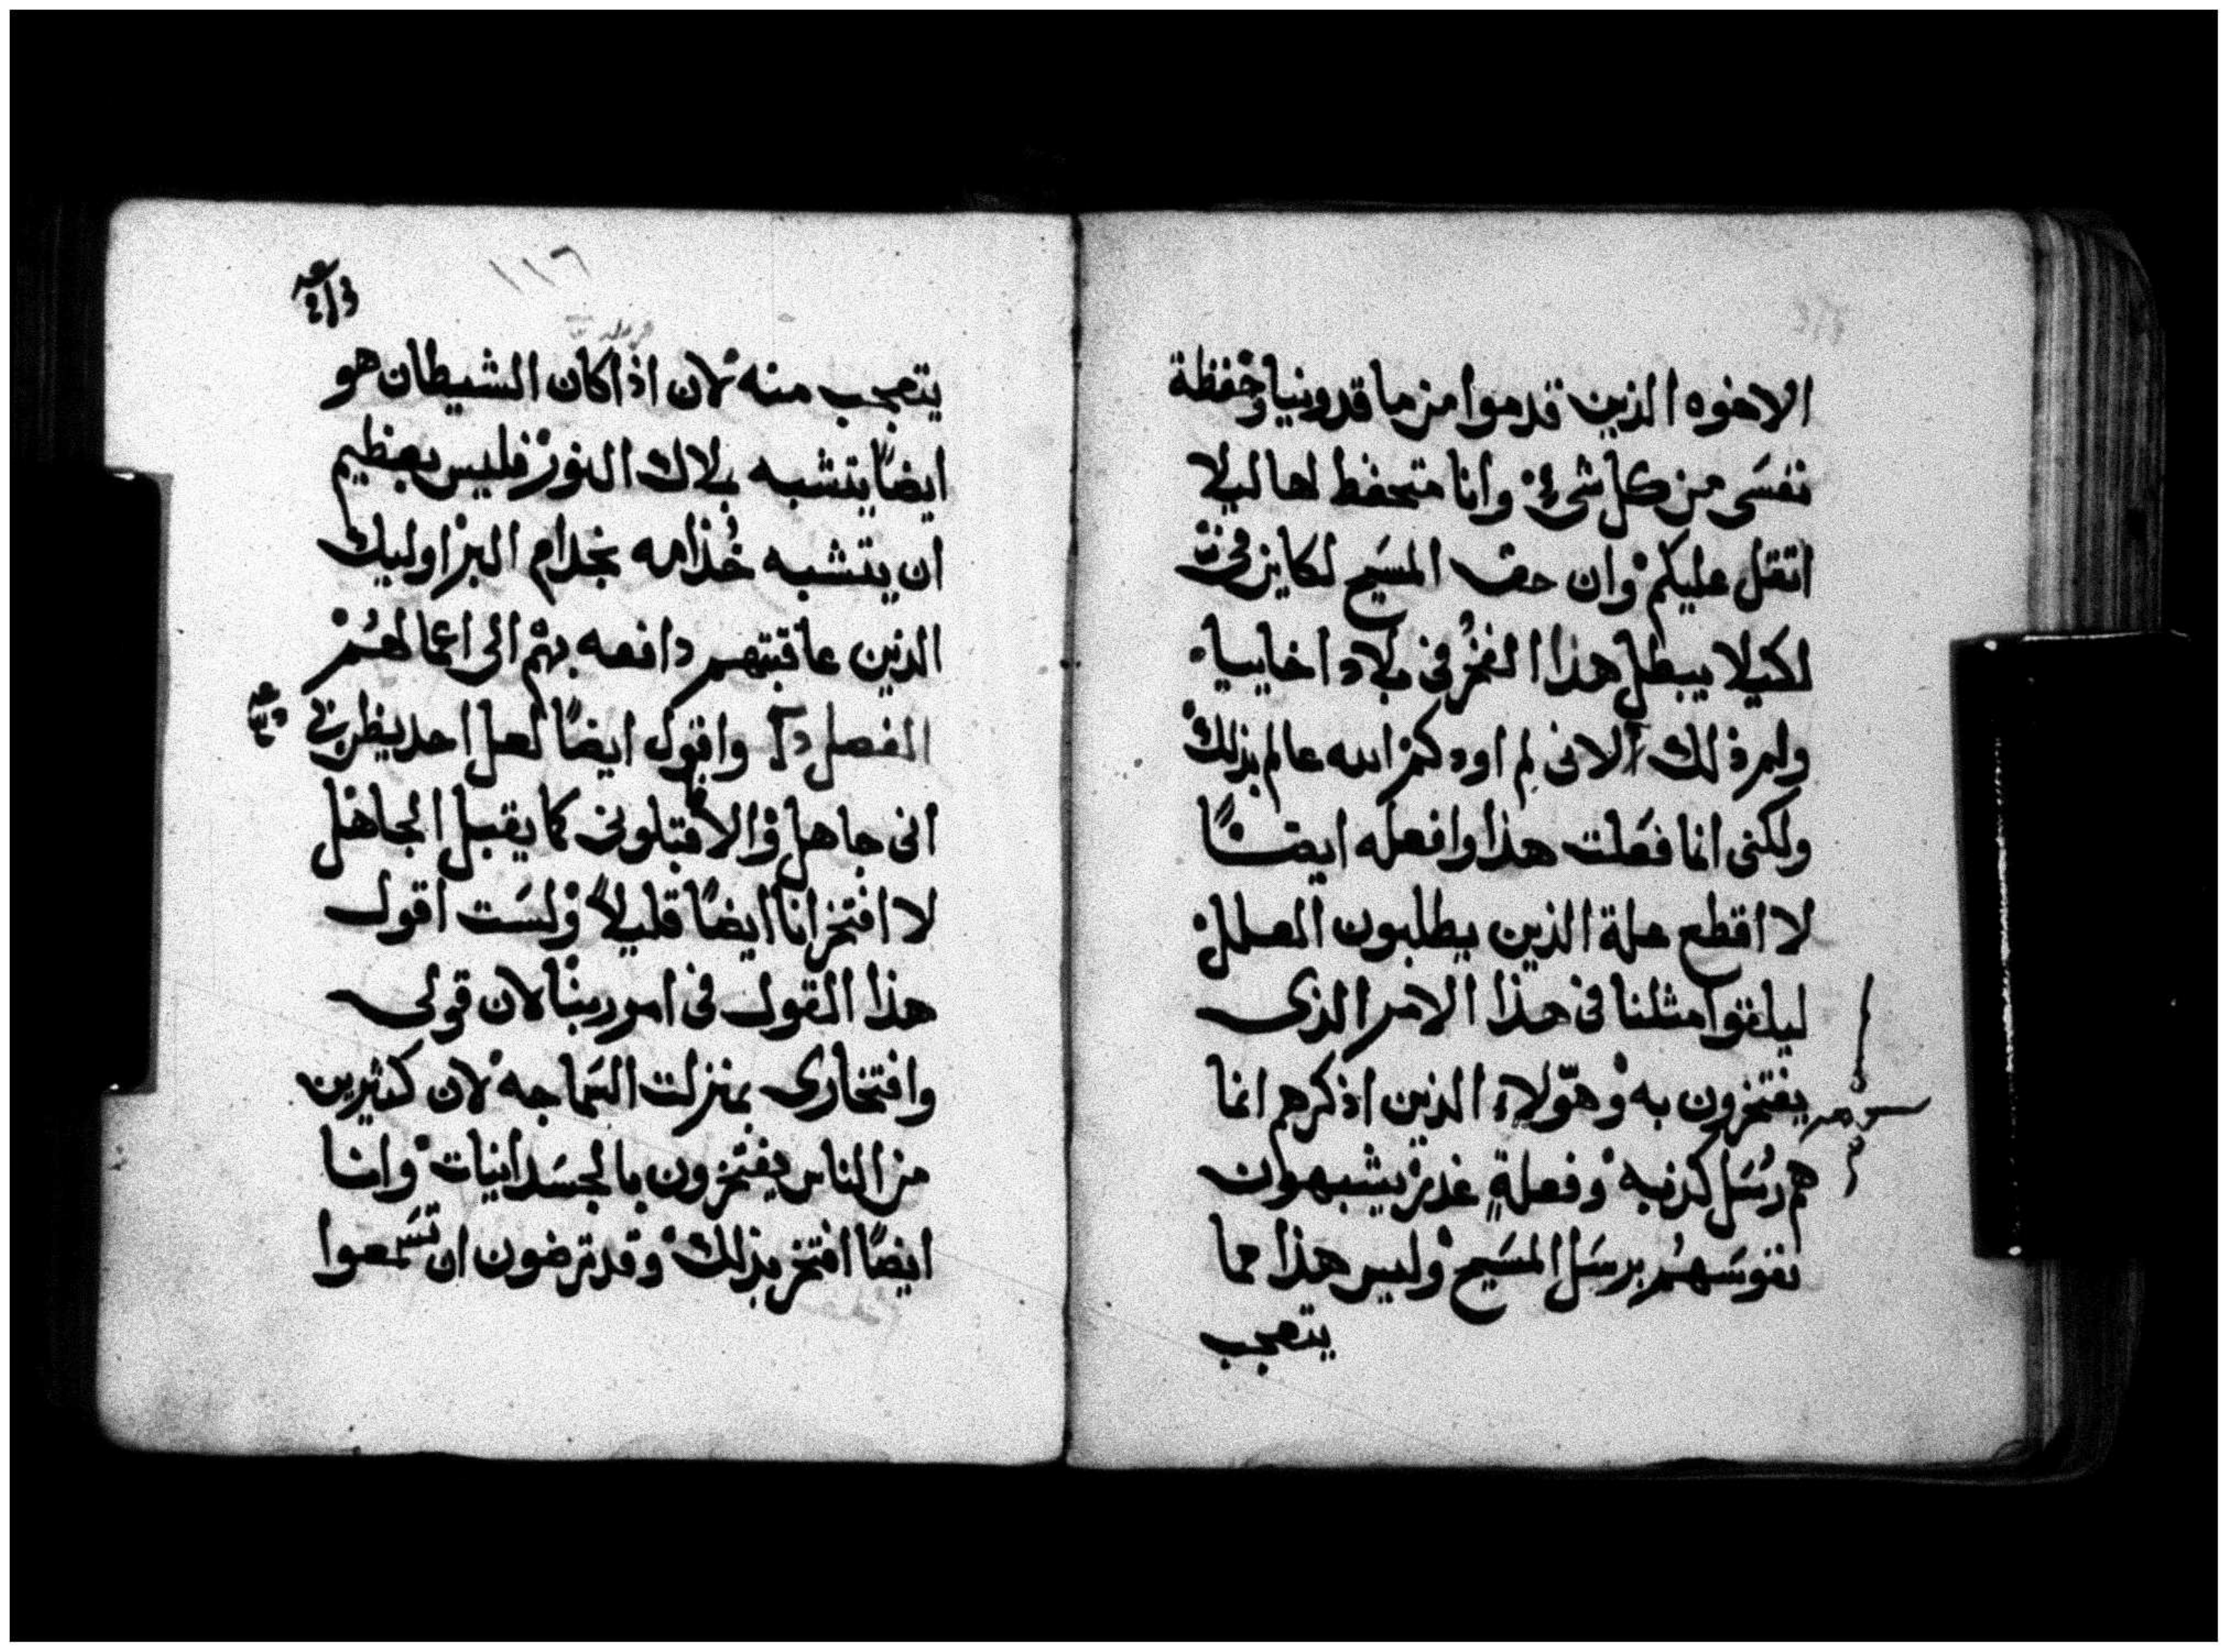 الاخوه الذين قدموا من ماقدونيا وحفظة
نفسى من كل شىء وانا متحفظ لها ليلا
اثقل عليكم وان حق المسيح لكاين فى
لكيلا يبطل هذا الفخر فى بلاد اخاييا
ولم ذلك الانى لم اودكم الله عالم بذلك
ولكنى انما فعلت هذا وافعله ايضًا
لا اقطع علة الذين يطلبون العلل
ليلفوا مثلنا فى هذا الامر الذى
يفتخرون به وهولاء الذين اذكرهم انما
هم رسل كذبه وفعلة غدر يشبهون
نفوسهم برسل المسيح وليس هذا مما
يتعجب
١١٦
يتعجب منه لان اذا كان الشيطان هو
ايضًا يتشبه بملاك النور فليس بعظيم
ان يتشبه خدامه بخدام البر اوليك
الذين عاقبتهم دافعه بهم الى اعمالهم
الفصل واقول ايضًا لعل احد يظن بى
انى جاهل والا فاقبلونى كما يقبل الجاهل
لا افتخر انا ايضًا قليلاً ولست اقول
هذا القول فى امور ربنا لان قولى
وافتخارى بمنزلت السماجه لان كثيرين
من الناس يفتخرون بالجسدانيات وانا
ايضًا افتخر بذلك وقد ترضون ان تسمعوا